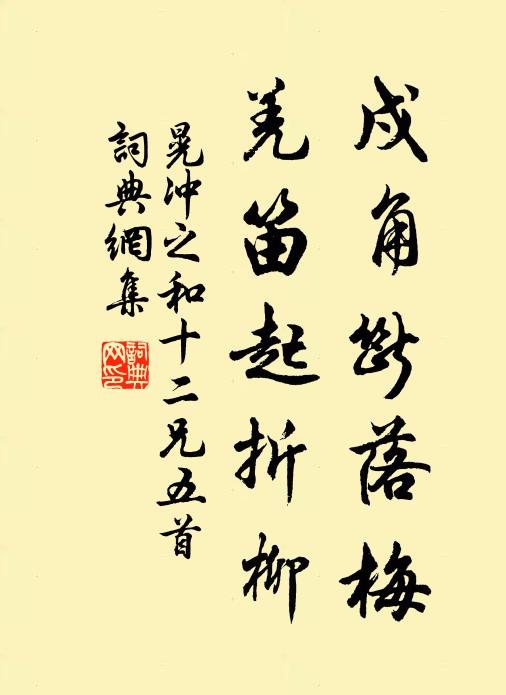 戍角斷落梅
羌笛起折柳
晁冲之和十二兄五首
詞典網集
詞典網印